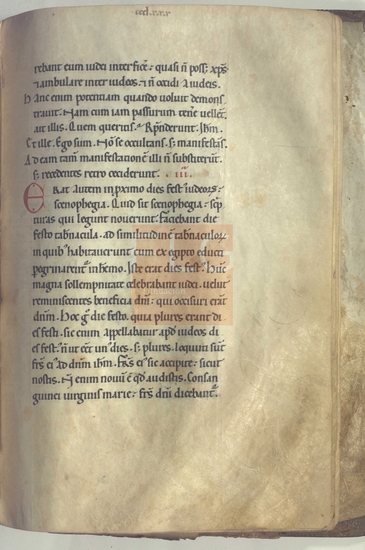 rebant eum iudei interfice͛: quasi n̄ poss͛ xp̄s
⁊ ambulare inter iudeos ⁊ n̄ occidi a iudeis.
Hanc enim potentiam quando voluit demons
travit. Nam cum iam passurum tene͛ vellet͛
ait illis. Quem queritis. Rn̄derunt. Ihm̄.
Et ille. Ego sum. Nō se occultans. s; manifestās.
Ad eam tam̄ manifestationē illi n̄ substiter̄t.
s; recedentes retro occiderunt. .iii.
ERat autem in p̄ximo dies fest᷒ iudeor̄.
scenophegia. Quid sit scenophegia: scp̄
turas qui legunt noverunt. Faciebant die
festo tab̄nacula. ad similitudinē tab̄naculor̄
in quib᷒ habitaverunt cum ex egipto educti
pegrinarent᷒ in hemo. Iste erat dies fest᷒. Hunc
magna sollempnitate celebrabant iudei. velut
reminiscentes beneficia dn̄i: qui occisuri erāt
dn̄m. Hoc g͛ die festo. quia plures erant di
es fest᷒. sic enim appellabatur ap̄d iudeos di
es fest᷒. n̄ ut eēt un᷒ dies. s; plures. locuti sūt
frs̄ ei᷒ ad dn̄m ihm̄. Frs̄ ei᷒ sic accipite: sicut
nostis. Nō enim novū ē qd̄ audistis. Consan
guinei virginis marie: frs̄ dn̄i dicebant᷒.